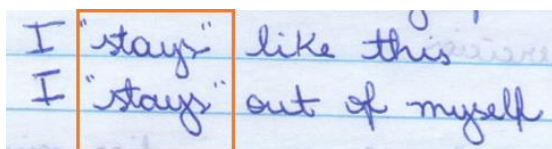 I "stays" like this
I "stays" out of myself